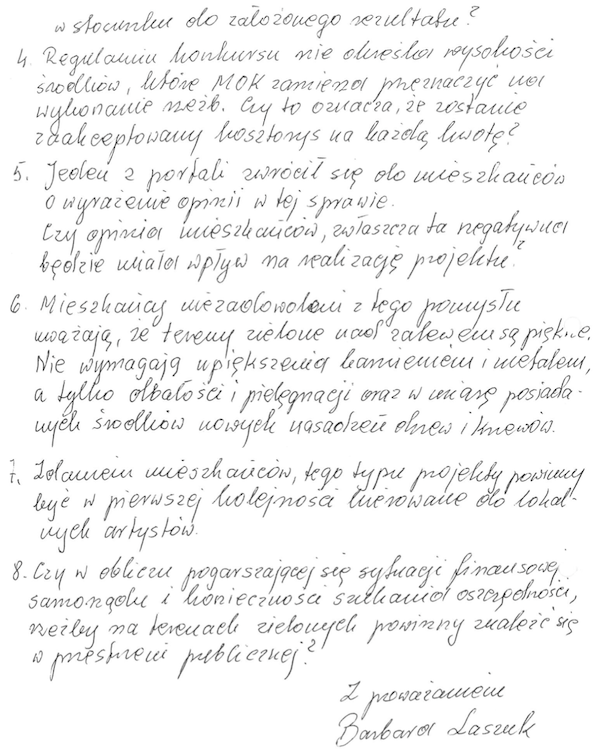 w stosunku do założonego rezultatu?
4. Regulamin konkursu nie określa wysokości
środków, które MOK zamierza przeznaczyć na
wykonanie rzeźb. Czy to oznacza, że zostanie
zaakceptowany kosztorys na każdą kwotę?
5. Jeden z portali zwrócił się do mieszkańców
o wyrażenie opinii w tej sprawie.
Czy opinia mieszkańców, zwłaszcza ta negatywna
będzie miała wpływ na realizację projektu?
6. Mieszkańcy niezadowoleni z tego pomysłu
uważają, że tereny zielone nad zalewem są piękne.
Nie wymagają upiększenia kamieniem i metalem,
a tylko dbałości i pielęgnacji oraz w miarę posiada-
nych środków nowych nasadzeń drzew i krzewów.
7. Zdaniem mieszkańców, tego typu projekty powinny
być w pierwszej kolejności kierowane do lokal-
nych artystów.
8. Czy w obliczu pogarszającej się sytuacji finansowej
samorządu i konieczności szukania oszczędności,
rzeźby na terenach zielonych powinny znaleźć się
w przestrzeni publicznej?
Z poważaniem
Barbara Laszuk